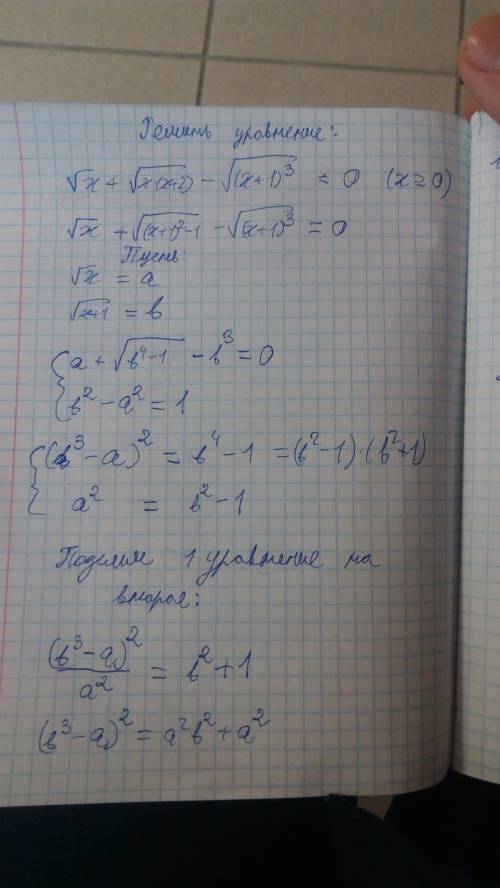 Решить уравнение:
√x + √x(x+2) − √(x+1)³ = 0 (x≥0)
√x + √(x+1)²−1 − √(x+1)³ = 0
Пусть:
√x = a
√x+1 = b
{ a + √b⁴−1 − b³ = 0
b² − a² = 1
{ (b³−a)² = b⁴−1 = (b²−1)·(b²+1)
a² = b²−1
Поделим 1 уравнение на
второе:
(b³−a)²/a² = b²+1
(b³−a)² = a²b²+a²